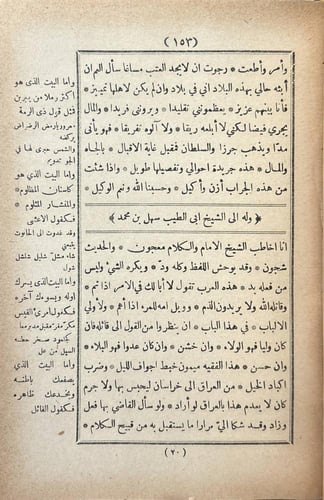 (١٥٣)
وأمر وأطعت * رجوت ان لايجد العتب مساغا سأل العم ان
أبثه حالى بهذه البلاد انى فى بلاد وان لم يكن لاهلها تمييز *
فأنا بينهم عزيز * يعظمونى تقليدا * ويرونى فريدا * والمال
يجرى فيضا لكنى لا أبلعه ريقا * ولا آلوه تفريقا * فهو يأتى
مدا ويذهب جزرا والسلطان فمقبل غاية الاقبال * بالجاه
والمال * هذه جريدة احوالى وتفصيلها طويل * واذا شئت
من هذه الجراب أزن وأكيل * وحسبنا الله ونعم الوكيل *
﴿ وله الى الشيخ ابى الطيب سهل بن محمد ﴾
انا اخاطب الشيخ الامام والكلام معجون * والحديث
شجون * وقد يوحش اللفظ وكله ود * ويكره الشىء وليس
من فعله بد * هذه العرب تقول لا أبا لك فى الامر اذا تم *
وقاتله الله ولا يريدون الذم * وويل امه للمرء اذا أهم * ولأولى
الالباب * فى هذا الباب * ان ينظروا من القول الى قائله فان
كان وليا فهو الولاء * وان خشن * وان كان عدوا فهو البلاء *
وان حسن * هذا الفقيه ميمون خبط اجواف الليل * وضرب
اكباد الخيل * من العراق الى خراسان ليحبس بها ولا جرم
كان لا يعدم هذا بالعراق لو أراد * ولو سأل القاضى بها فعل
وزاد وقد شكا الىّ مرارا ما يستقبل به من قبيح الكلام *
وأما البيت الذى هو
أكثر رملا من يبرين
فمثل قول ذى الرمة
والشمس حيرى لها فى
الجو تدويم
وأما البيت الذى هو
كأسنان المظلوم *
والمنشار المثلوم *
فكقول الاعشى
وقد غدوت الى الحانوت
يتبعنى
شاو مشل شلول شلشل
شول
وأما البيت الذى يسرك
أوله ويسوءك آخره
فكقول امرئ القيس
مكر مفر مقبل مدبر معا
كجلمود صخر حطه
السيل من عل
وأما البيت الذى
يصفعك باطنه
ويخدعك ظاهره
فكقول القائل
(٢٠)